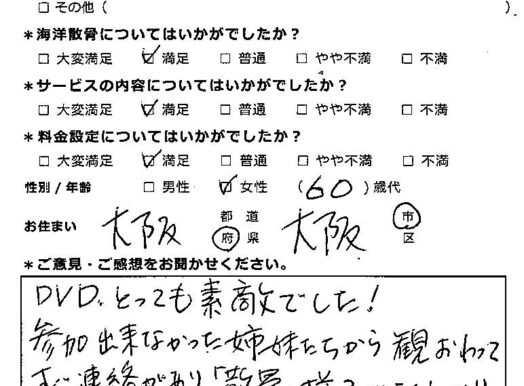 □ その他 (                    )
*海洋散骨についてはいかがでしたか？
□ 大変満足 ☑ 満足 □ 普通 □ やや不満 □ 不満
*サービスの内容についてはいかがでしたか？
□ 大変満足 ☑ 満足 □ 普通 □ やや不満 □ 不満
*料金設定についてはいかがでしたか？
□ 大変満足 ☑ 満足 □ 普通 □ やや不満 □ 不満
性別 / 年齢 □ 男性 ☑ 女性 (60) 歳代
お住まい 大阪 都 道 府 県 大阪 市 区
*ご意見・ご感想をお聞かせください。
DVD、とっても素敵でした！
参加出来なかった姉妹たちから 観おわって
連絡があり「散骨